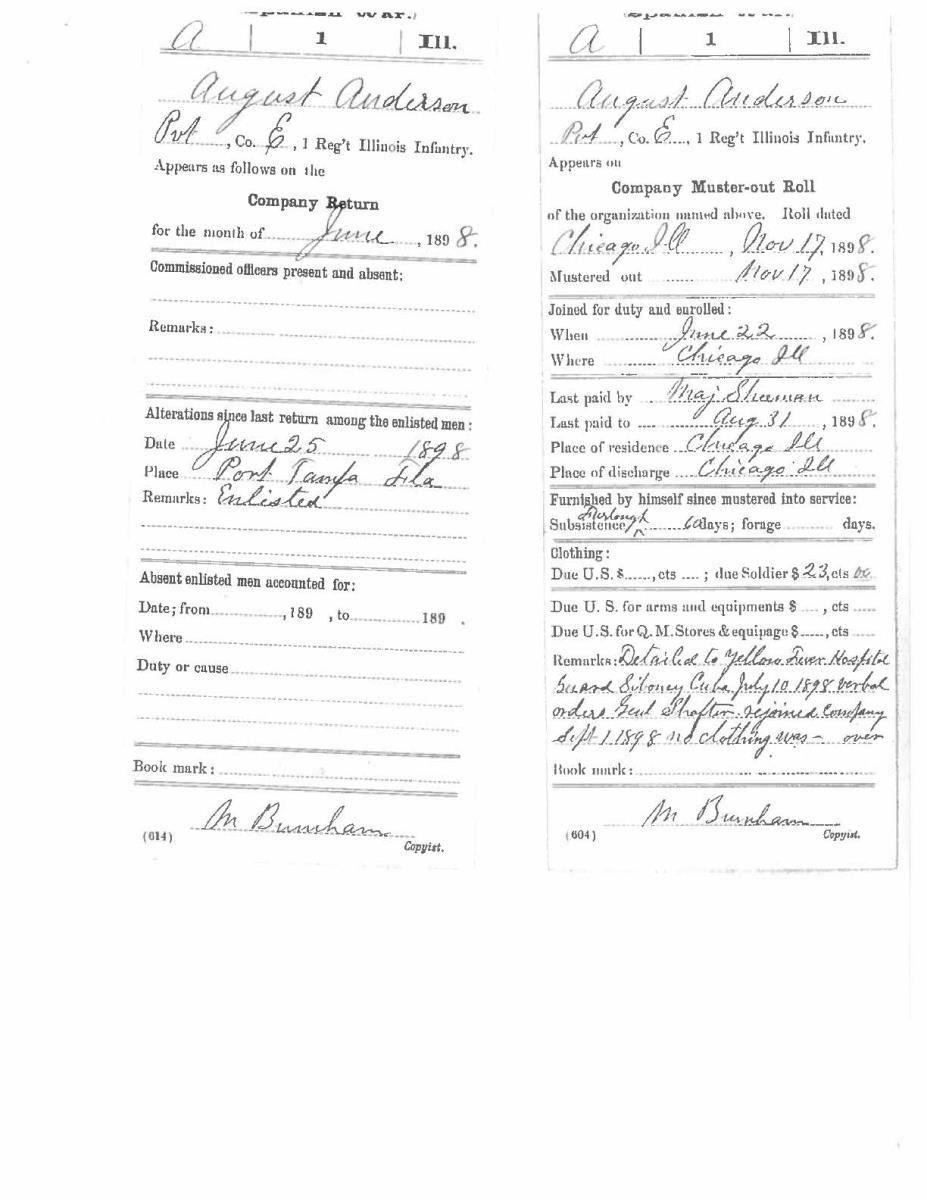 Spanish War.)
A | 1 | Ill.
August Anderson
Pvt, Co. E, 1 Reg't Illinois Infantry.
Appears as follows on the
Company Return
for the month of June, 1898.
Commissioned officers present and absent:
Remarks:
Alterations since last return among the enlisted men:
Date June 25 1898
Place Port Tampa Fla
Remarks: Enlisted
Absent enlisted men accounted for:
Date; from, 189 , to 189 .
Where
Duty or cause
Book mark:
M Burnham
(614) Copyist.
(Spanish War.)
A | 1 | Ill.
August Anderson
Pvt, Co. E, 1 Reg't Illinois Infantry.
Appears on
Company Muster-out Roll
of the organization named above. Roll dated
Chicago Ill, Nov 17, 1898.
Mustered out Nov 17, 1898.
Joined for duty and enrolled:
When June 22, 1898.
Where Chicago Ill
Last paid by Maj
Last paid to Aug 31, 1898.
Place of residence Chicago Ill
Place of discharge Chicago Ill
Furnished by himself since mustered into service:
Furlough
Subsistence 60 days; forage days.
Clothing:
Due U.S. $, cts ; due Soldier $23, cts
Due U. S. for arms and equipments $ , cts
Due U.S. for Q. M. Stores & equipage $, cts
Remarks: Detailed to Yellow Fever Hospital
Guard Siboney Cuba July 10 1898 verbal
orders Genl Shafter. rejoined Company
Sept 1 1898 no clothing was – over
Book mark:
M Burnham
(604) Copyist.